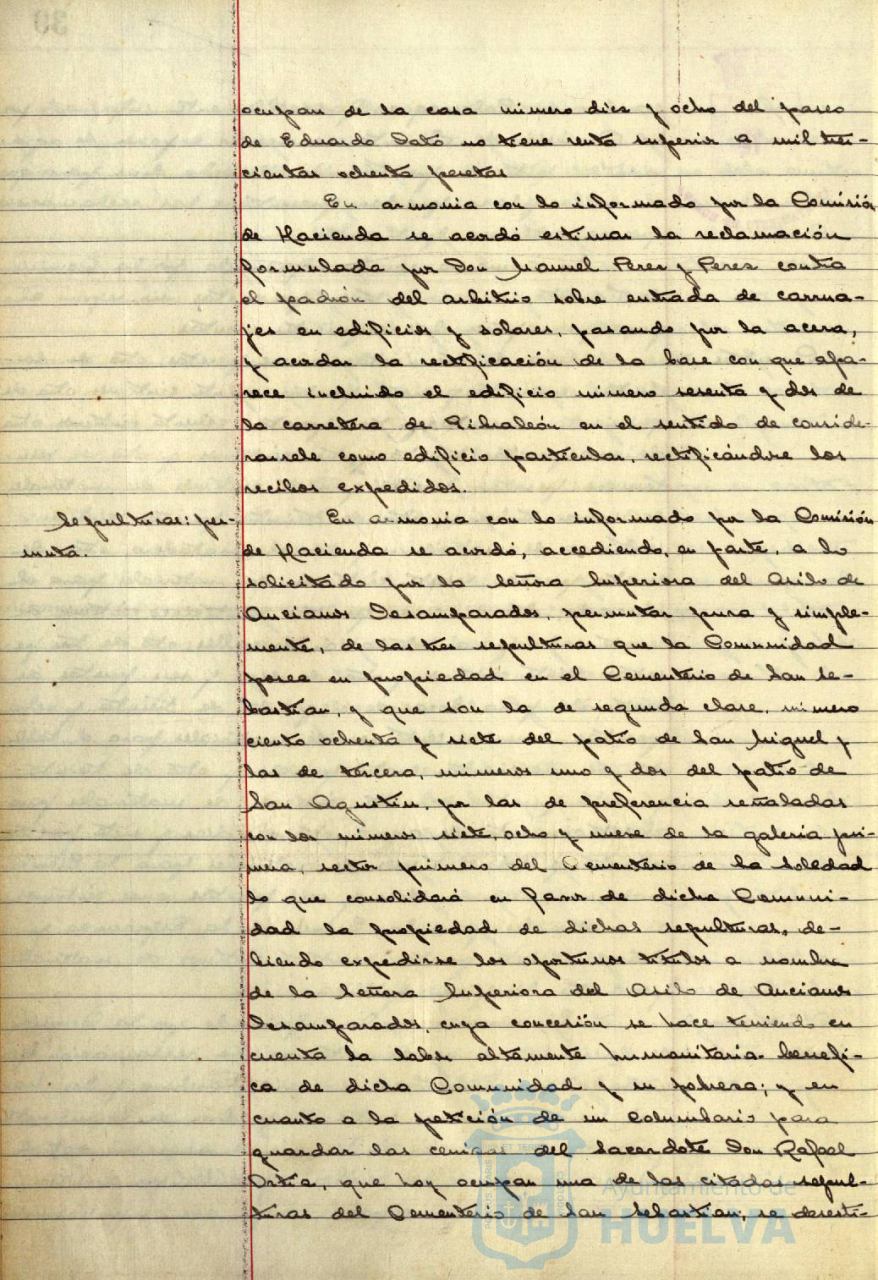 ocupan de la casa número diez y ocho del paseo
de Eduardo Dato no tiene renta superior a mil tres-
cientas ochenta pesetas
En armonia con lo informado por la Comisión
de Hacienda se acordó estimar la reclamación
formulada por Don Manuel Perez y Perez contra
el padrón del arbitrio sobre entrada de carrua-
jes en edificios y solares, pasando por la acera,
y acordar la rectificación de la base con que apa-
rece incluido el edificio número sesenta y dos de
la carretera de Gibraleón en el sentido de conside-
rarsele como edificio particular, rectificándose los
recibos expedidos.
Sepulturas: per-
muta.
En armonia con lo informado por la Comisión
de Hacienda se acordó, accediendo, en parte, a lo
solicitado por la Señora Superiora del Asilo de
Ancianos Desamparados, permutar pura y simple-
mente, de las tres sepulturas que la Comunidad
posee en propiedad en el Cementerio de San Se-
bastian, y que son la de segunda clase, número
ciento ochenta y siete del patio de San Miguel y
las de tercera, números uno y dos del patio de
San Agustin, por las de preferencia señaladas
con los números siete, ocho y nueve de la galeria pri-
mera, sector primero del Cementerio de la Soledad
lo que consolidará en favor de dicha Comuni-
dad la propiedad de dichas sepulturas, de-
biendo expedirse los oportunos titulos a nombre
de la Señora Superiora del Asilo de Ancianos
Desamparados, cuya concesión se hace teniendo en
cuenta la labor altamente humanitaria-benefi-
ca de dicha Comunidad y su pobreza; y en
cuanto a la petición de un Columbario para
guardar las cenizas del Sacerdote Don Rafael
Ortiz, que hoy ocupan una de las citadas sepul-
turas del Cementerio de San Sebastian, se desesti-
Ayuntamiento de
HUELVA